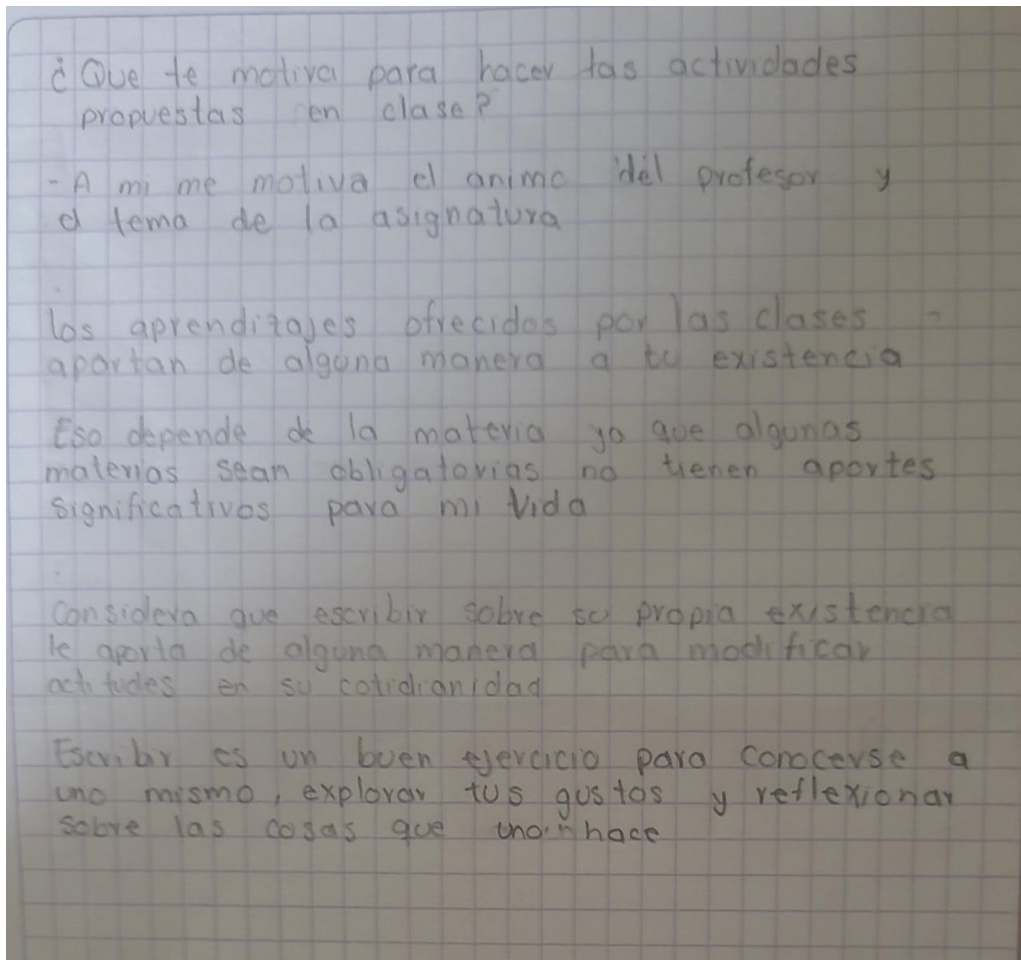 ¿Que te motiva para hacer las actividades
propuestas en clase?
- A mi me motiva el animo del profesor y
el tema de la asignatura
los aprendizajes ofrecidos por las clases
aportan de alguna manera a tu existencia
Eso depende de la materia ya que algunas
materias sean obligatorias no tienen aportes
significativos para mi vida
Considera que escribir sobre su propia existencia
le aporta de alguna manera para modificar
actitudes en su cotidianidad
Escribir es un buen ejercicio para conocerse a
uno mismo, explorar tus gustos y reflexionar
sobre las cosas que uno hace